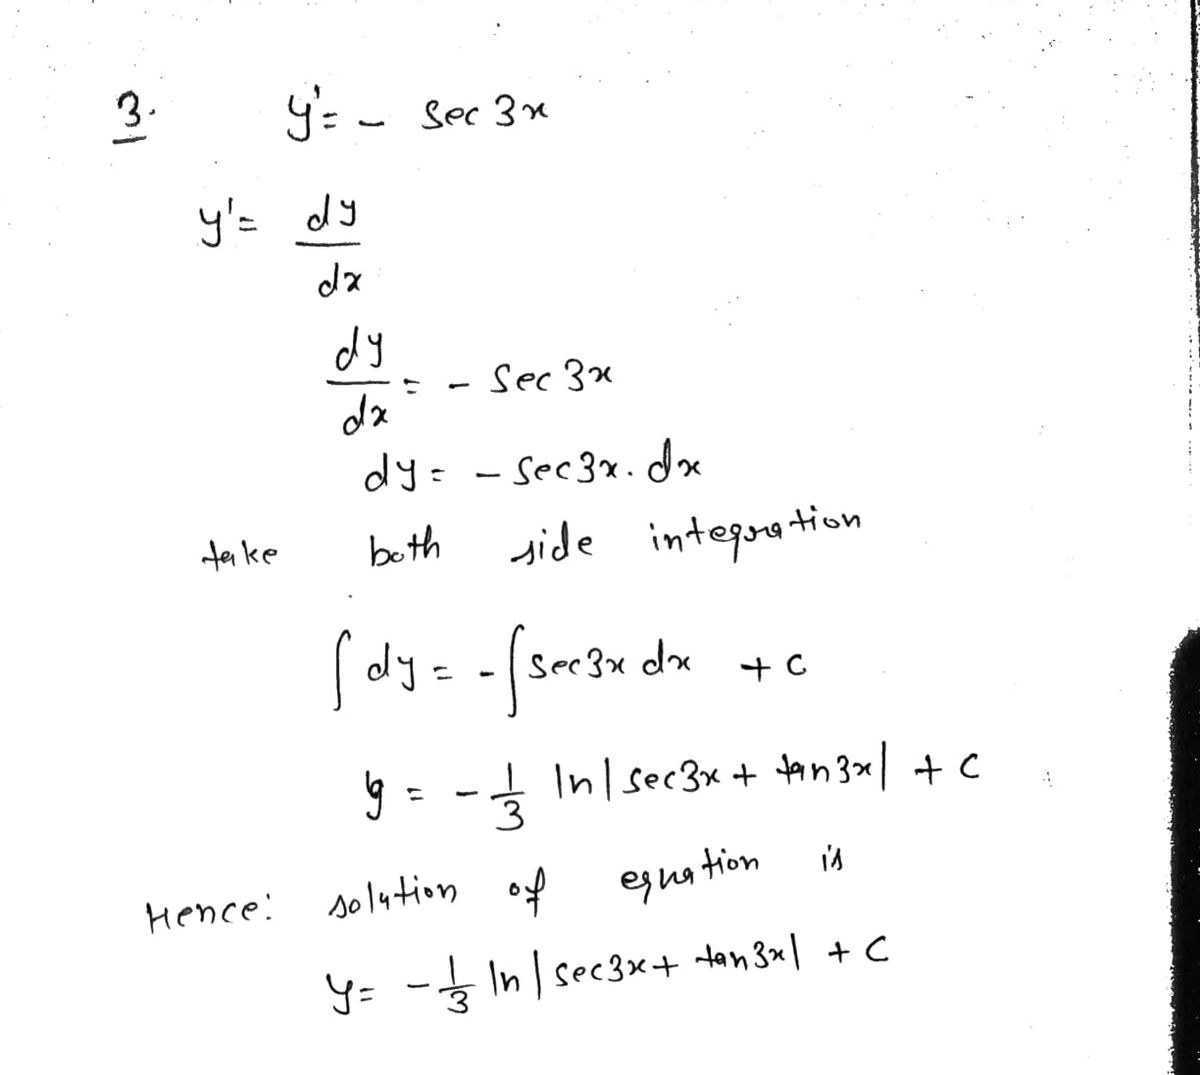 3. y' = - sec 3x
y' = dy/dx
dy/dx = - sec 3x
dy = - sec 3x . dx
take both side integration
∫ dy = - ∫ sec 3x dx + c
y = - 1/3 ln | sec 3x + tan 3x | + c
Hence: solution of equation is
y = - 1/3 ln | sec 3x + tan 3x | + c